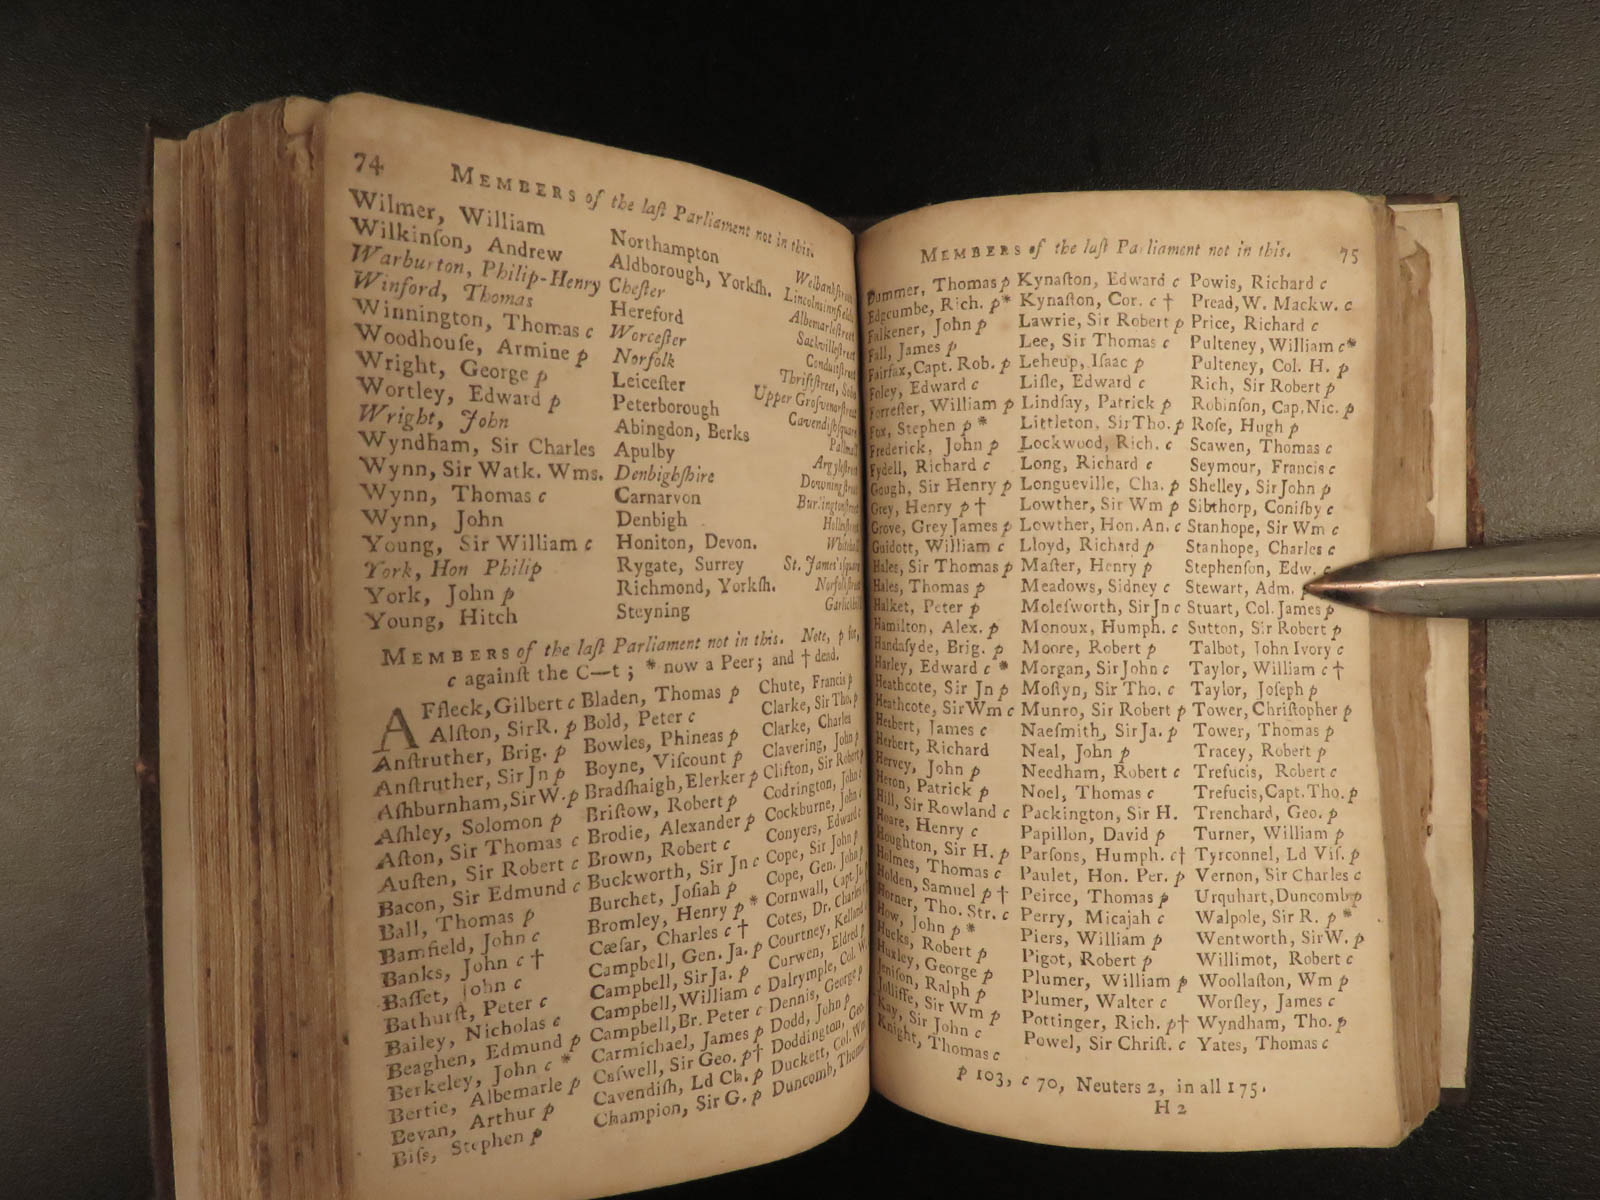 74
MEMBERS of the laſt Parliament not in this.
Wilmer, William Northampton
Wilkinſon, Andrew Aldborough, Yorkſh. Welbankſtreet
Warburton, Philip-Henry Cheſter Lincolnsinnfields
Winford, Thomas Hereford Albemarleſtreet
Winnington, Thomas c Worceſter Sackvilleſtreet
Woodhouſe, Armine p Norfolk Conduitſtreet
Wright, George p Leiceſter Thriftſtreet, Soho
Wortley, Edward p Peterborough Upper Groſvenorſtreet
Wright, John Abingdon, Berks Cavendiſhſquare
Wyndham, Sir Charles Apulby Pallmall
Wynn, Sir Watk. Wms. Denbighſhire Argyleſtreet
Wynn, Thomas c Carnarvon Downingſtreet
Wynn, John Denbigh Burlingtonſtreet
Young, Sir William c Honiton, Devon. Hollesſtreet
York, Hon Philip Rygate, Surrey Whitehall
York, John p Richmond, Yorkſh. St. James'sſquare
Young, Hitch Steyning Norfolkſtreet
MEMBERS of the laſt Parliament not in this. Note, p for,
c againſt the C—t; * now a Peer; and † dead.
AFfleck, Gilbert c
Alſton, Sir R. p
Anſtruther, Brig. p
Anſtruther, Sir Jn p
Aſhburnham, Sir W. p
Aſhley, Solomon p
Aſton, Sir Thomas c
Auſten, Sir Robert c
Bacon, Sir Edmund c
Ball, Thomas p
Bamfield, John c
Banks, John c †
Baſſet, John c
Bathurſt, Peter c
Bailey, Nicholas c
Beaghen, Edmund p
Berkeley, John c *
Bertie, Albemarle p
Bevan, Arthur p
Biſs, Stephen p
Bladen, Thomas p
Bold, Peter c
Bowles, Phineas p
Boyne, Viſcount p
Bradſhaigh, Elerker p
Briſtow, Robert p
Brodie, Alexander p
Brown, Robert c
Buckworth, Sir Jn c
Burchet, Joſiah p
Bromley, Henry p *
Cæſar, Charles c †
Campbell, Gen. Ja. p
Campbell, Sir Ja. p
Campbell, William c
Campbell, Br. Peter c
Carmichael, James p
Caſwell, Sir Geo. p †
Cavendiſh, Ld Ch. p
Champion, Sir G. p
Chute, Francis p
Clarke, Sir Tho. p
Clarke, Charles
Clavering, John p
Clifton, Sir Robert p
Codrington, John c
Cockburne, John c
Conyers, Edward c
Cope, Sir John p
Cope, Gen. John p
Cornwall, Capt. Ja.
Cotes, Dr. Charles
Courtney, Kelland
Curwen, Eldred p
Dalrymple, Col. W.
Dennis, George p
Dodd, John p
Doddington, Geo.
Duckett, Col. Wm
Duncomb, Thomas
MEMBERS of the laſt Parliament not in this. 75
Dummer, Thomas p
Edgcumbe, Rich. p *
Falkener, John p
Fall, James p
Fairfax, Capt. Rob. p
Foley, Edward c
Forreſter, William p
Fox, Stephen p *
Frederick, John p
Fydell, Richard c
Gough, Sir Henry p
Grey, Henry p †
Grove, Grey James p
Guidott, William c
Hales, Sir Thomas p
Hales, Thomas p
Halket, Peter p
Hamilton, Alex. p
Handaſyde, Brig. p
Harley, Edward c *
Heathcote, Sir Jn p
Heathcote, Sir Wm c
Herbert, James c
Herbert, Richard
Hervey, John p
Heron, Patrick p
Hill, Sir Rowland c
Hoare, Henry c
Houghton, Sir H. p
Holmes, Thomas c
Holden, Samuel p †
Horner, Tho. Str. c
How, John p *
Hucks, Robert p
Huxley, George p
Jeniſon, Ralph p
Jolliffe, Sir Wm p
Kay, Sir John c
Knight, Thomas c
Kynaſton, Edward c
Kynaſton, Cor. c †
Lawrie, Sir Robert p
Lee, Sir Thomas c
Leheup, Iſaac p
Liſle, Edward c
Lindſay, Patrick p
Littleton, Sir Tho. p
Lockwood, Rich. c
Long, Richard c
Longueville, Cha. p
Lowther, Sir Wm p
Lowther, Hon. An. c
Lloyd, Richard p
Maſter, Henry p
Meadows, Sidney c
Moleſworth, Sir Jn c
Monoux, Humph. c
Moore, Robert p
Morgan, Sir John c
Moſtyn, Sir Tho. c
Munro, Sir Robert p
Naeſmith, Sir Ja. p
Neal, John p
Needham, Robert c
Noel, Thomas c
Packington, Sir H.
Papillon, David p
Parſons, Humph. c †
Paulet, Hon. Per. p
Peirce, Thomas p
Perry, Micajah c
Piers, William p
Pigot, Robert p
Plumer, William p
Plumer, Walter c
Pottinger, Rich. p †
Powel, Sir Chriſt. c
Powis, Richard c
Pread, W. Mackw. c
Price, Richard c
Pulteney, William c *
Pulteney, Col. H. p
Rich, Sir Robert p
Robinſon, Cap, Nic. p
Roſe, Hugh p
Scawen, Thomas c
Seymour, Francis c
Shelley, Sir John p
Sibthorp, Coniſby c
Stanhope, Sir Wm c
Stanhope, Charles c
Stephenſon, Edw. c
Stewart, Adm. p
Stuart, Col. James p
Sutton, Sir Robert p
Talbot, John Ivory c
Taylor, William c †
Taylor, Joſeph p
Tower, Chriſtopher p
Tower, Thomas p
Tracey, Robert p
Trefucis, Robert c
Trefucis, Capt. Tho. p
Trenchard, Geo. p
Turner, William p
Tyrconnel, Ld Viſ. p
Vernon, Sir Charles c
Urquhart, Duncomb p
Walpole, Sir R. p *
Wentworth, Sir W. p
Willimot, Robert c
Woollaſton, Wm p
Worſley, James c
Wyndham, Tho. p
Yates, Thomas c
p 103, c 70, Neuters 2, in all 175.
H 2